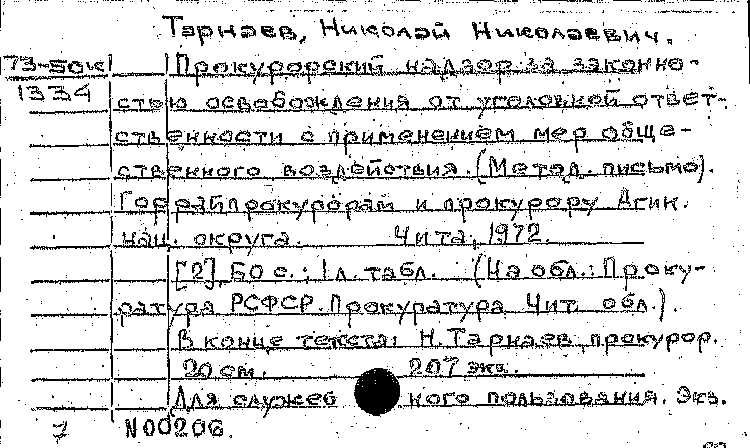 Тарнаев, Николай Николаевич.
73-50к Прокурорский надзор за законно-
1334 стью освобождения от уголовной ответ-
ственности с применением мер обще-
ственного воздействия. (Метод. письмо).
Горрайпрокурорам и прокурору Агин.
нац. округа. Чита, 1972.
[2], 50 с.; 1 л. табл. (На обл.: Проку-
ратура РСФСР. Прокуратура Чит. обл.).
В конце текста: Н. Тарнаев, прокурор.
20 см. 207 экз.
Для служеб ного пользования. Экз.
7 N00206.